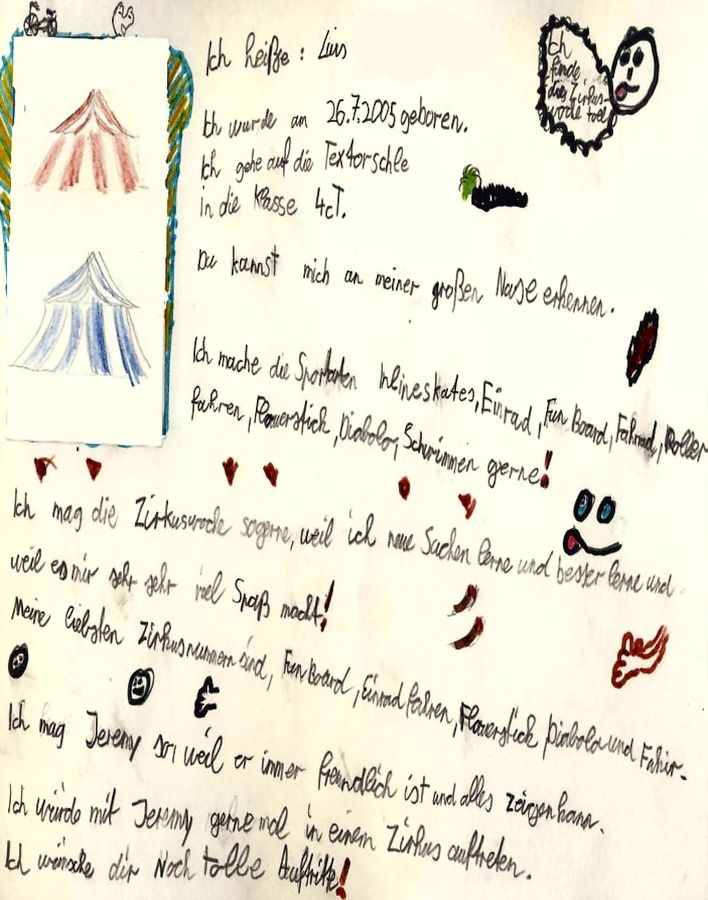 Ich heiße: Luis
Ich
finde
die Zirkus-
wode toll
Ich wurde am 26.7.2005 geboren.
Ich gehe auf die Textorschle
in die Klasse 4cT.
Du kannst mich an meiner großen Nase erkennen.
Ich mache die Sportarten Inlineskates, Einrad, Fun Board, Fahrrad, Roller
fahren, Flowerstick, Diabolo, Schwimmen gerne!
Ich mag die Zirkuswoche so gerne, weil ich neue Sachen lerne und besser lerne und
weil es mir sehr sehr viel Spaß macht!
Meine liebsten Zirkusnummern sind, Fun Board, Einrad fahren, Flowerstick, Diabolo und Fahir-
Ich mag Jeremy so, weil er immer freundlich ist und alles zeigen kann.
Ich würde mit Jeremy gerne mal in einem Zirkus auftreten.
Ich wünsche dir Noch tolle Auftritte!